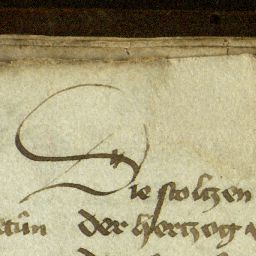 Die stoltzen
tûn der hertzog